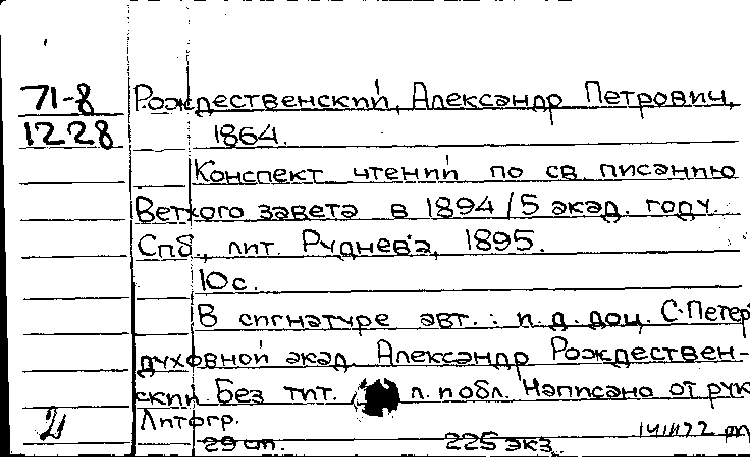 71-8 Рождественский, Александр Петрович,
1228 1864.
Конспект чтений по св. писанию
Ветхого завета в 1894/5 акад. году.
Спб., лит. Руднева, 1895.
10с.
В сигнатуре авт.: и.д. доц. С-Петер
духовной акад. Александр Рождествен-
ский. Без тит. л. и обл. Написано от рук
Литогр.
21 29 225 экз.